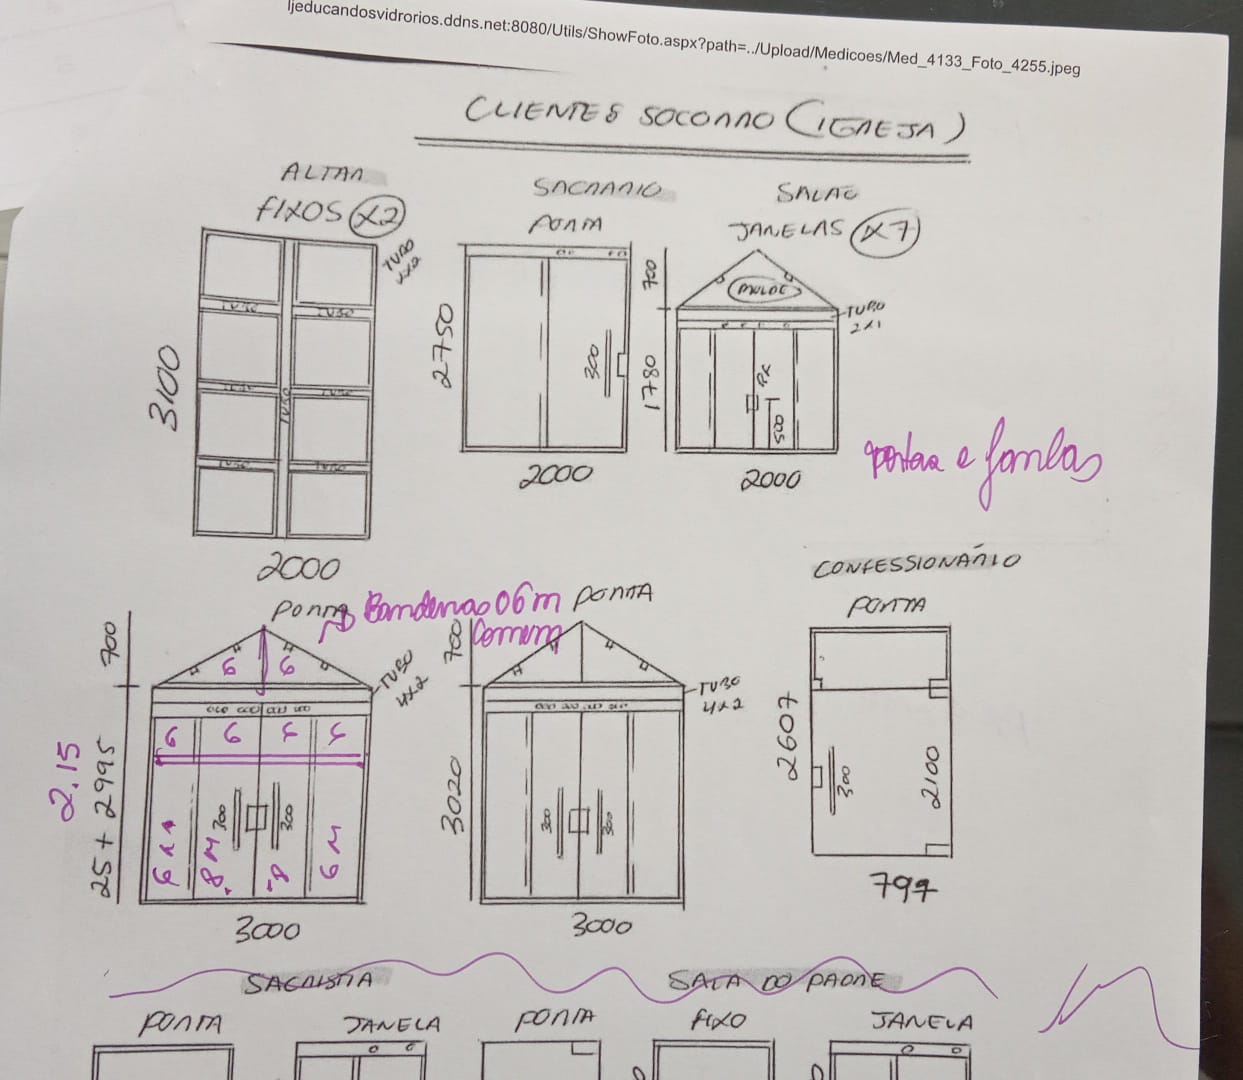 ljeducandosvidrorios.ddns.net:8080/Utils/ShowFoto.aspx?path=../Upload/Medicoes/Med_4133_Foto_4255.jpeg
CLIENTES SOCORRO (IGREJA)
ALTAR
FIXOS X2
TUBO
4X2
TUBO TUBO
TUBO TUBO
TUBO
TUBO TUBO
3100
2000
SACRARIO
PORTA
2750
300
2000
SALAO
JANELAS X7
700
MOLDE
TUBO
2X1
1780
PX
500
2000
portas e
PORTA
Bandeiras 06 m
Comum
700
6 6
TUBO
4X2
6 6
2.15
25 + 2995
300 300
8 M 8 6 M
3000
PORTA
700
TUBO
4X2
3020
300 300
3000
CONFESSIONÁRIO
PORTA
2607
300
2100
797
SACRISTIA
PORTA JANELA
SALA DO PADRE
PORTA FIXO JANELA